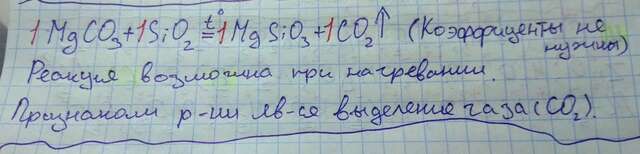 1MgCO₃+1SiO₂ t° = 1MgSiO₃+1CO₂↑ (Коэффициенты не нужны)
Реакция возможна при нагревании.
Признаком р-ии яв-ся выделение газа (CO₂).